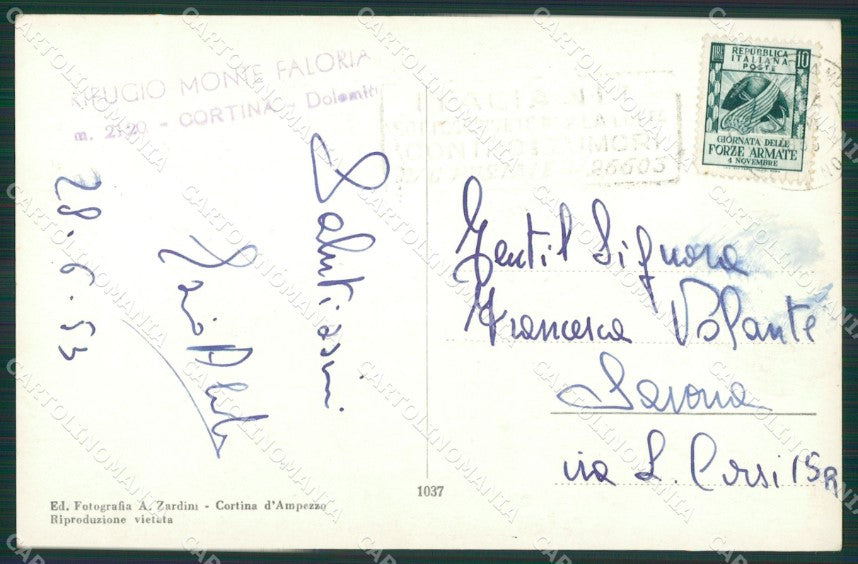 RIFUGIO MONTE FALORIA
m. 2120 - CORTINA - Dolomiti
28.6.53
Salutissimi
ITALIANI
CONTRO I TUMORI
REPUBBLICA
ITALIANA
POSTE
LIRE 10
GIORNATA DELLE
FORZE ARMATE
4 NOVEMBRE
Gentil Signora
Francesca Volante
Savona
via L. Corsi 15R
1037
Ed. Fotografia A. Zardini - Cortina d'Ampezzo
Riproduzione vietata
CARTOLINOMANIA